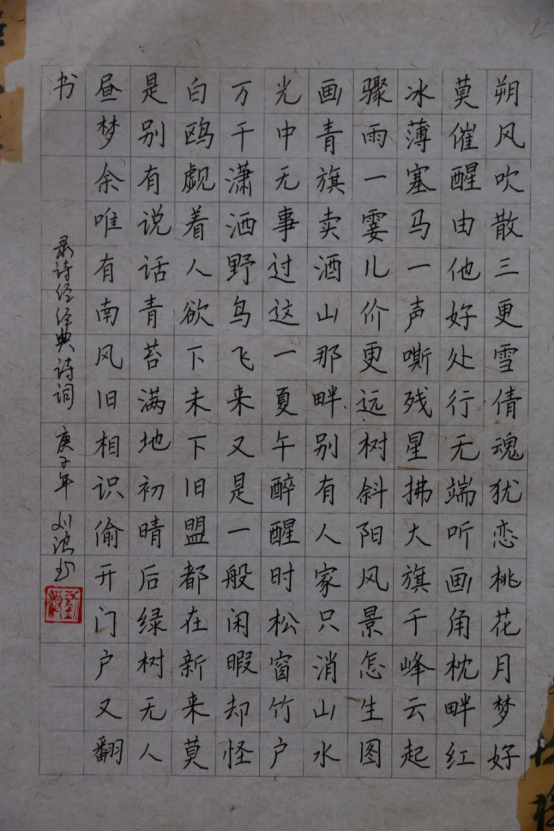 朔风吹散三更雪倩魂犹恋桃花月梦好
莫催醒由他好处行无端听画角枕畔红
冰薄塞马一声嘶残星拂大旗千峰云起
骤雨一霎儿价更远树斜阳风景怎生图
画青旗卖酒山那畔别有人家只消山水
光中无事过这一夏午醉醒时松窗竹户
万千潇洒野鸟飞来又是一般闲暇却怪
白鸥觑着人欲下未下旧盟都在新来莫
是别有说话青苔满地初晴后绿树无人
昼梦余唯有南风旧相识偷开门户又翻
书
录诗经经典诗词 庚子年 刘波书